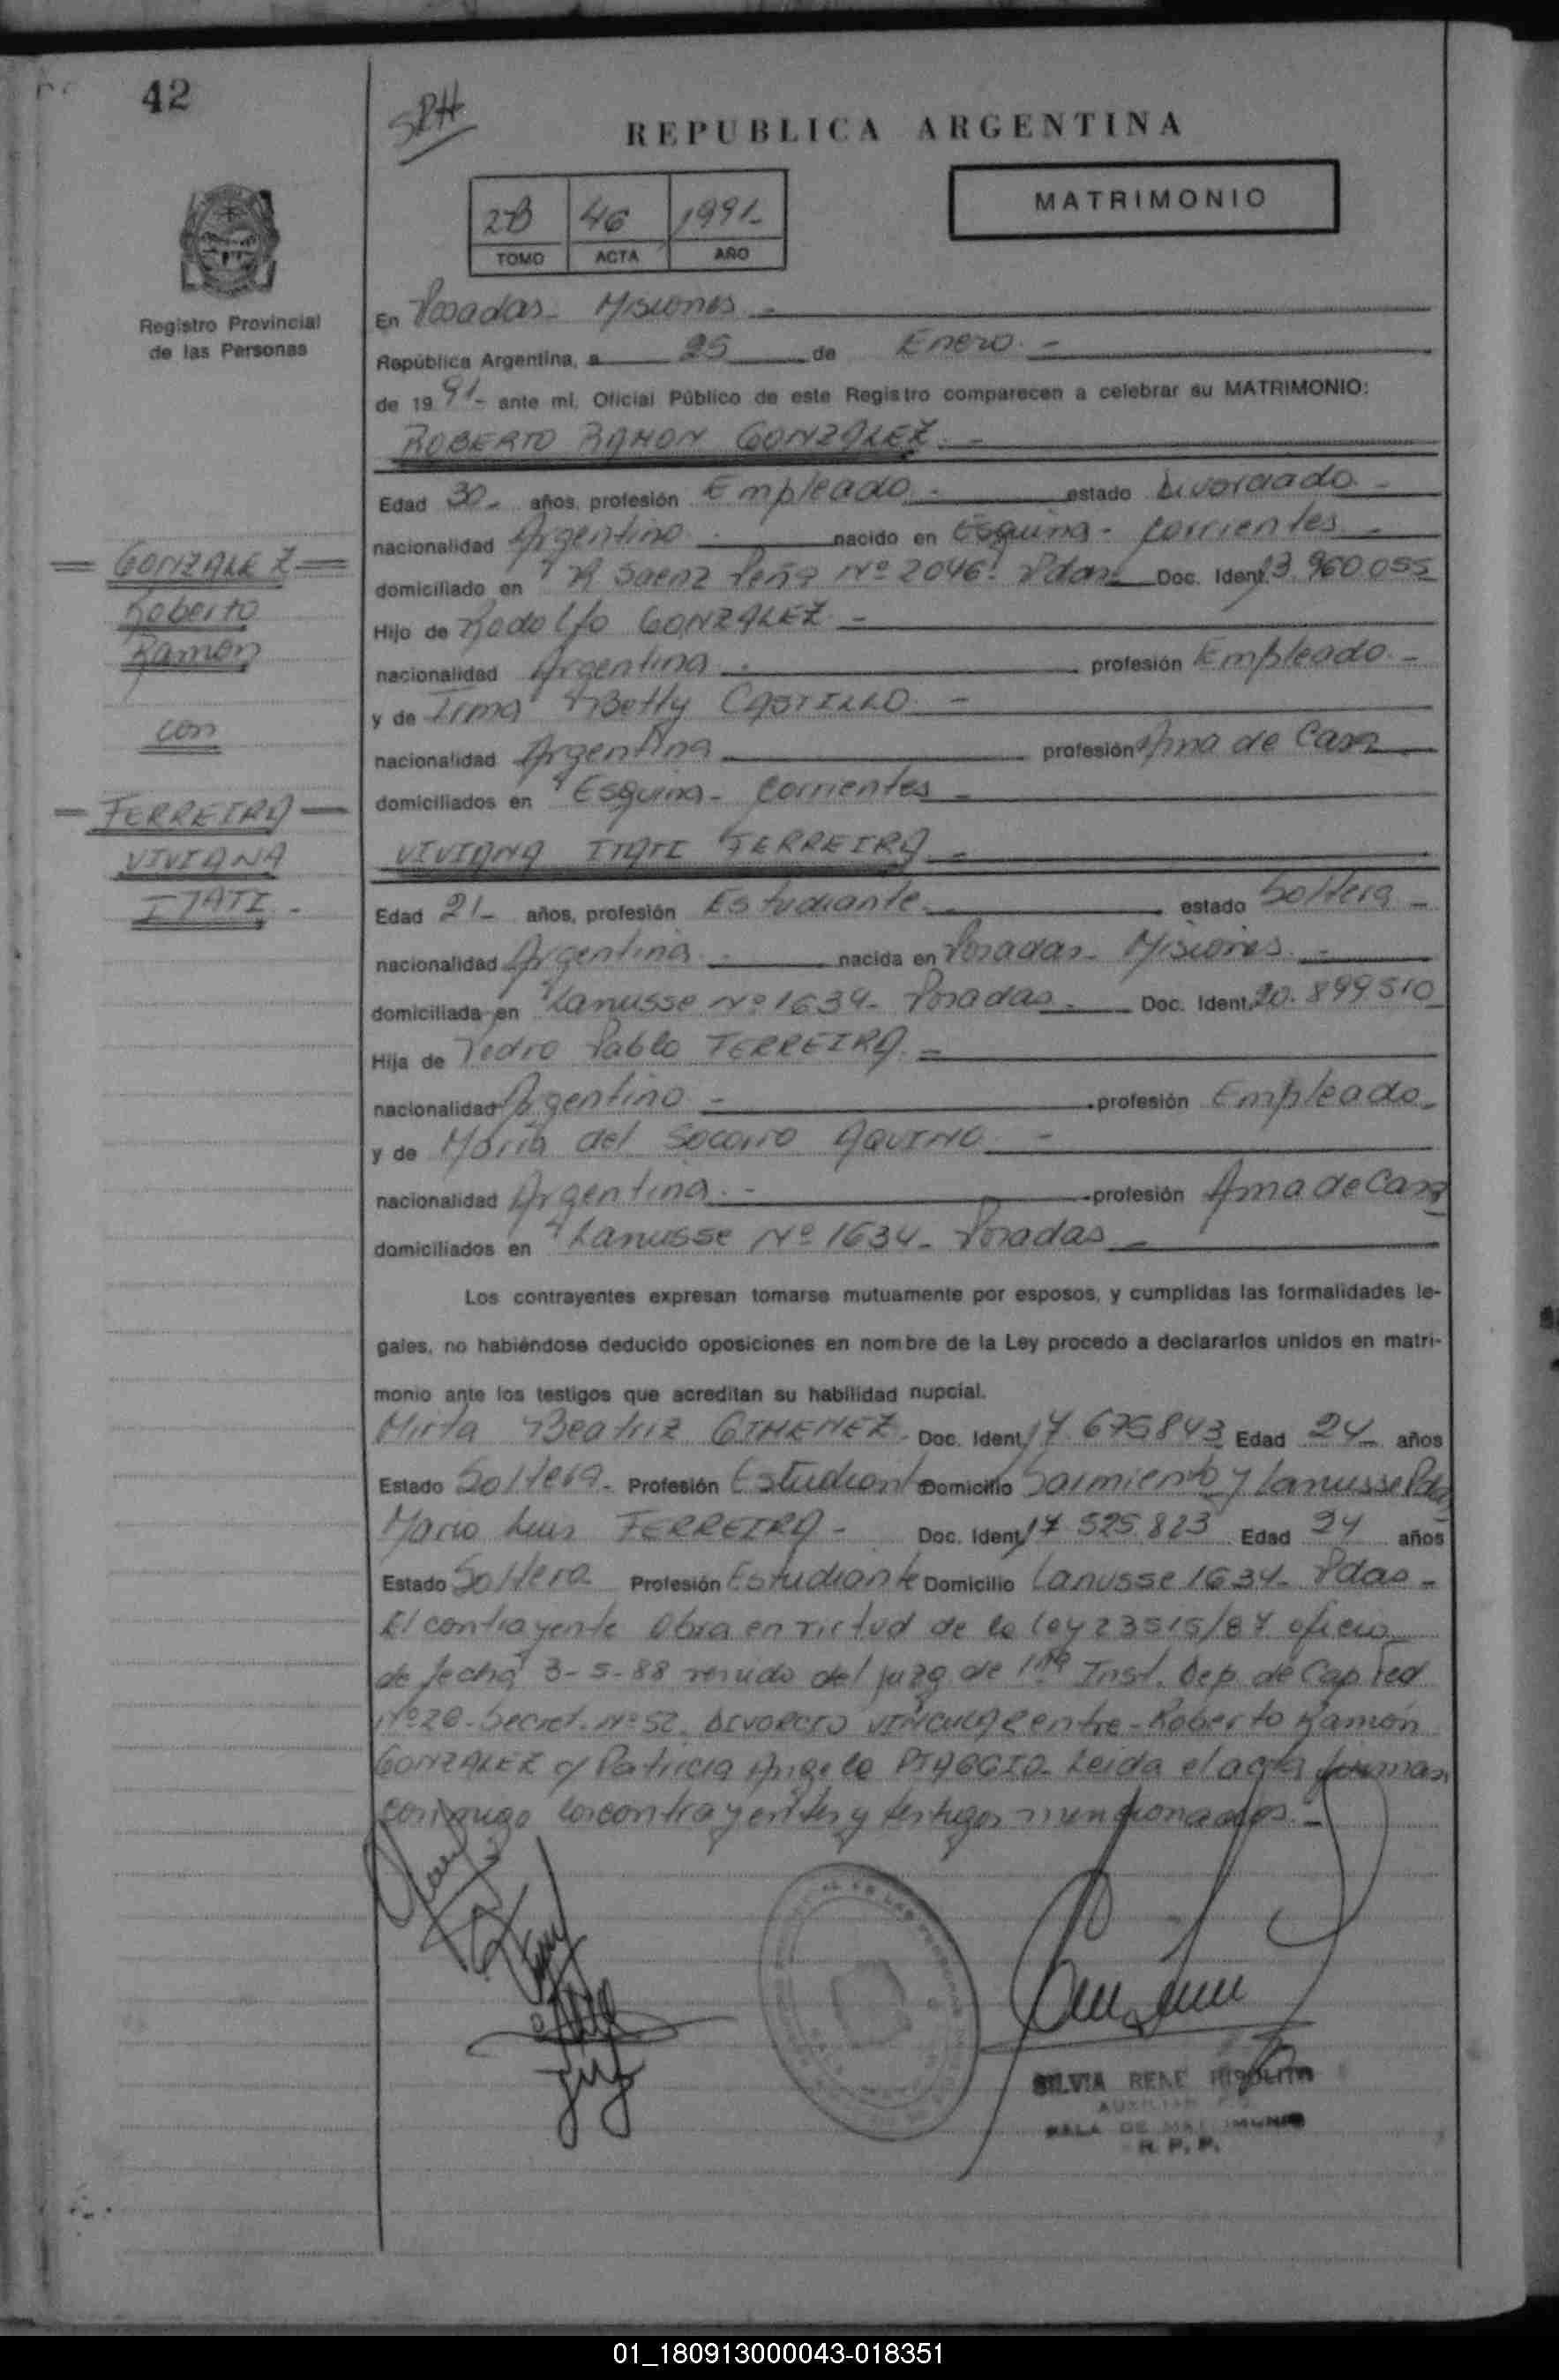 42
SRH
REPUBLICA ARGENTINA
MATRIMONIO
2B 46 1991-
TOMO ACTA AÑO
Registro Provincial
de las Personas
En Posadas - Misiones -
República Argentina, a 25 de Enero. -
de 19 91- ante mí, Oficial Público de este Registro comparecen a celebrar su MATRIMONIO:
ROBERTO RAMON GONZALEZ. -
Edad 30- años, profesión Empleado - estado Divorciado -
nacionalidad Argentino - nacido en Esquina - Corrientes -
domiciliado en R Saenz Peña Nº 2046- Pdas- Doc. Ident. 13.960.055
Hijo de Rodolfo GONZALEZ -
nacionalidad Argentina - profesión Empleado -
y de Irma Betty CASTILLO -
nacionalidad Argentina profesión Ama de Casa
domiciliados en Esquina - Corrientes -
VIVIANA ITATI FERREIRA -
Edad 21- años, profesión Estudiante - estado Soltera -
nacionalidad Argentina - nacida en Posadas - Misiones -
domiciliada en Lanusse Nº 1634- Posadas - Doc. Ident. 20.899510
Hija de Pedro Pablo FERREIRA. -
nacionalidad Argentino - profesión Empleado -
y de Maria del Socorro AQUINO -
nacionalidad Argentina. - profesión Ama de Casa
domiciliados en Lanusse Nº 1634- Posadas -
= GONZALEZ =
Roberto
Ramon
con
- FERREIRA -
VIVIANA
ITATI -
Los contrayentes expresan tomarse mutuamente por esposos, y cumplidas las formalidades le-
gales, no habiéndose deducido oposiciones en nombre de la Ley procedo a declararlos unidos en matri-
monio ante los testigos que acreditan su habilidad nupcial.
Mirta Beatriz GIMENEZ - Doc. Ident. 17.675843 Edad 24- años
Estado Soltera - Profesión Estudiant Domicilio Sarmiento y Lanusse Pdas
Mario Luis FERREIRA - Doc. Ident. 17.525.823 Edad 24 años
Estado Soltero Profesión Estudiante Domicilio Lanusse 1634- Pdas -
El contrayente Obra en virtud de la ley 23515/87 oficio
de fecha 3-5-88 venido del juzg de 1ra Inst. Dep. de Cap Fed
Nº 20 - Secret. Nº 52. DIVORCIO VINCULAR entre - Roberto Ramón
GONZALEZ c/ Patricia Angela PIAGGIO - Leida el acta firman
conmigo los contrayentes y testigos mencionados. -
SILVIA RENE HIPOLITO
AUXILIAR
SALA DE MATRIMONIO
R. P. P.
01_180913000043-018351